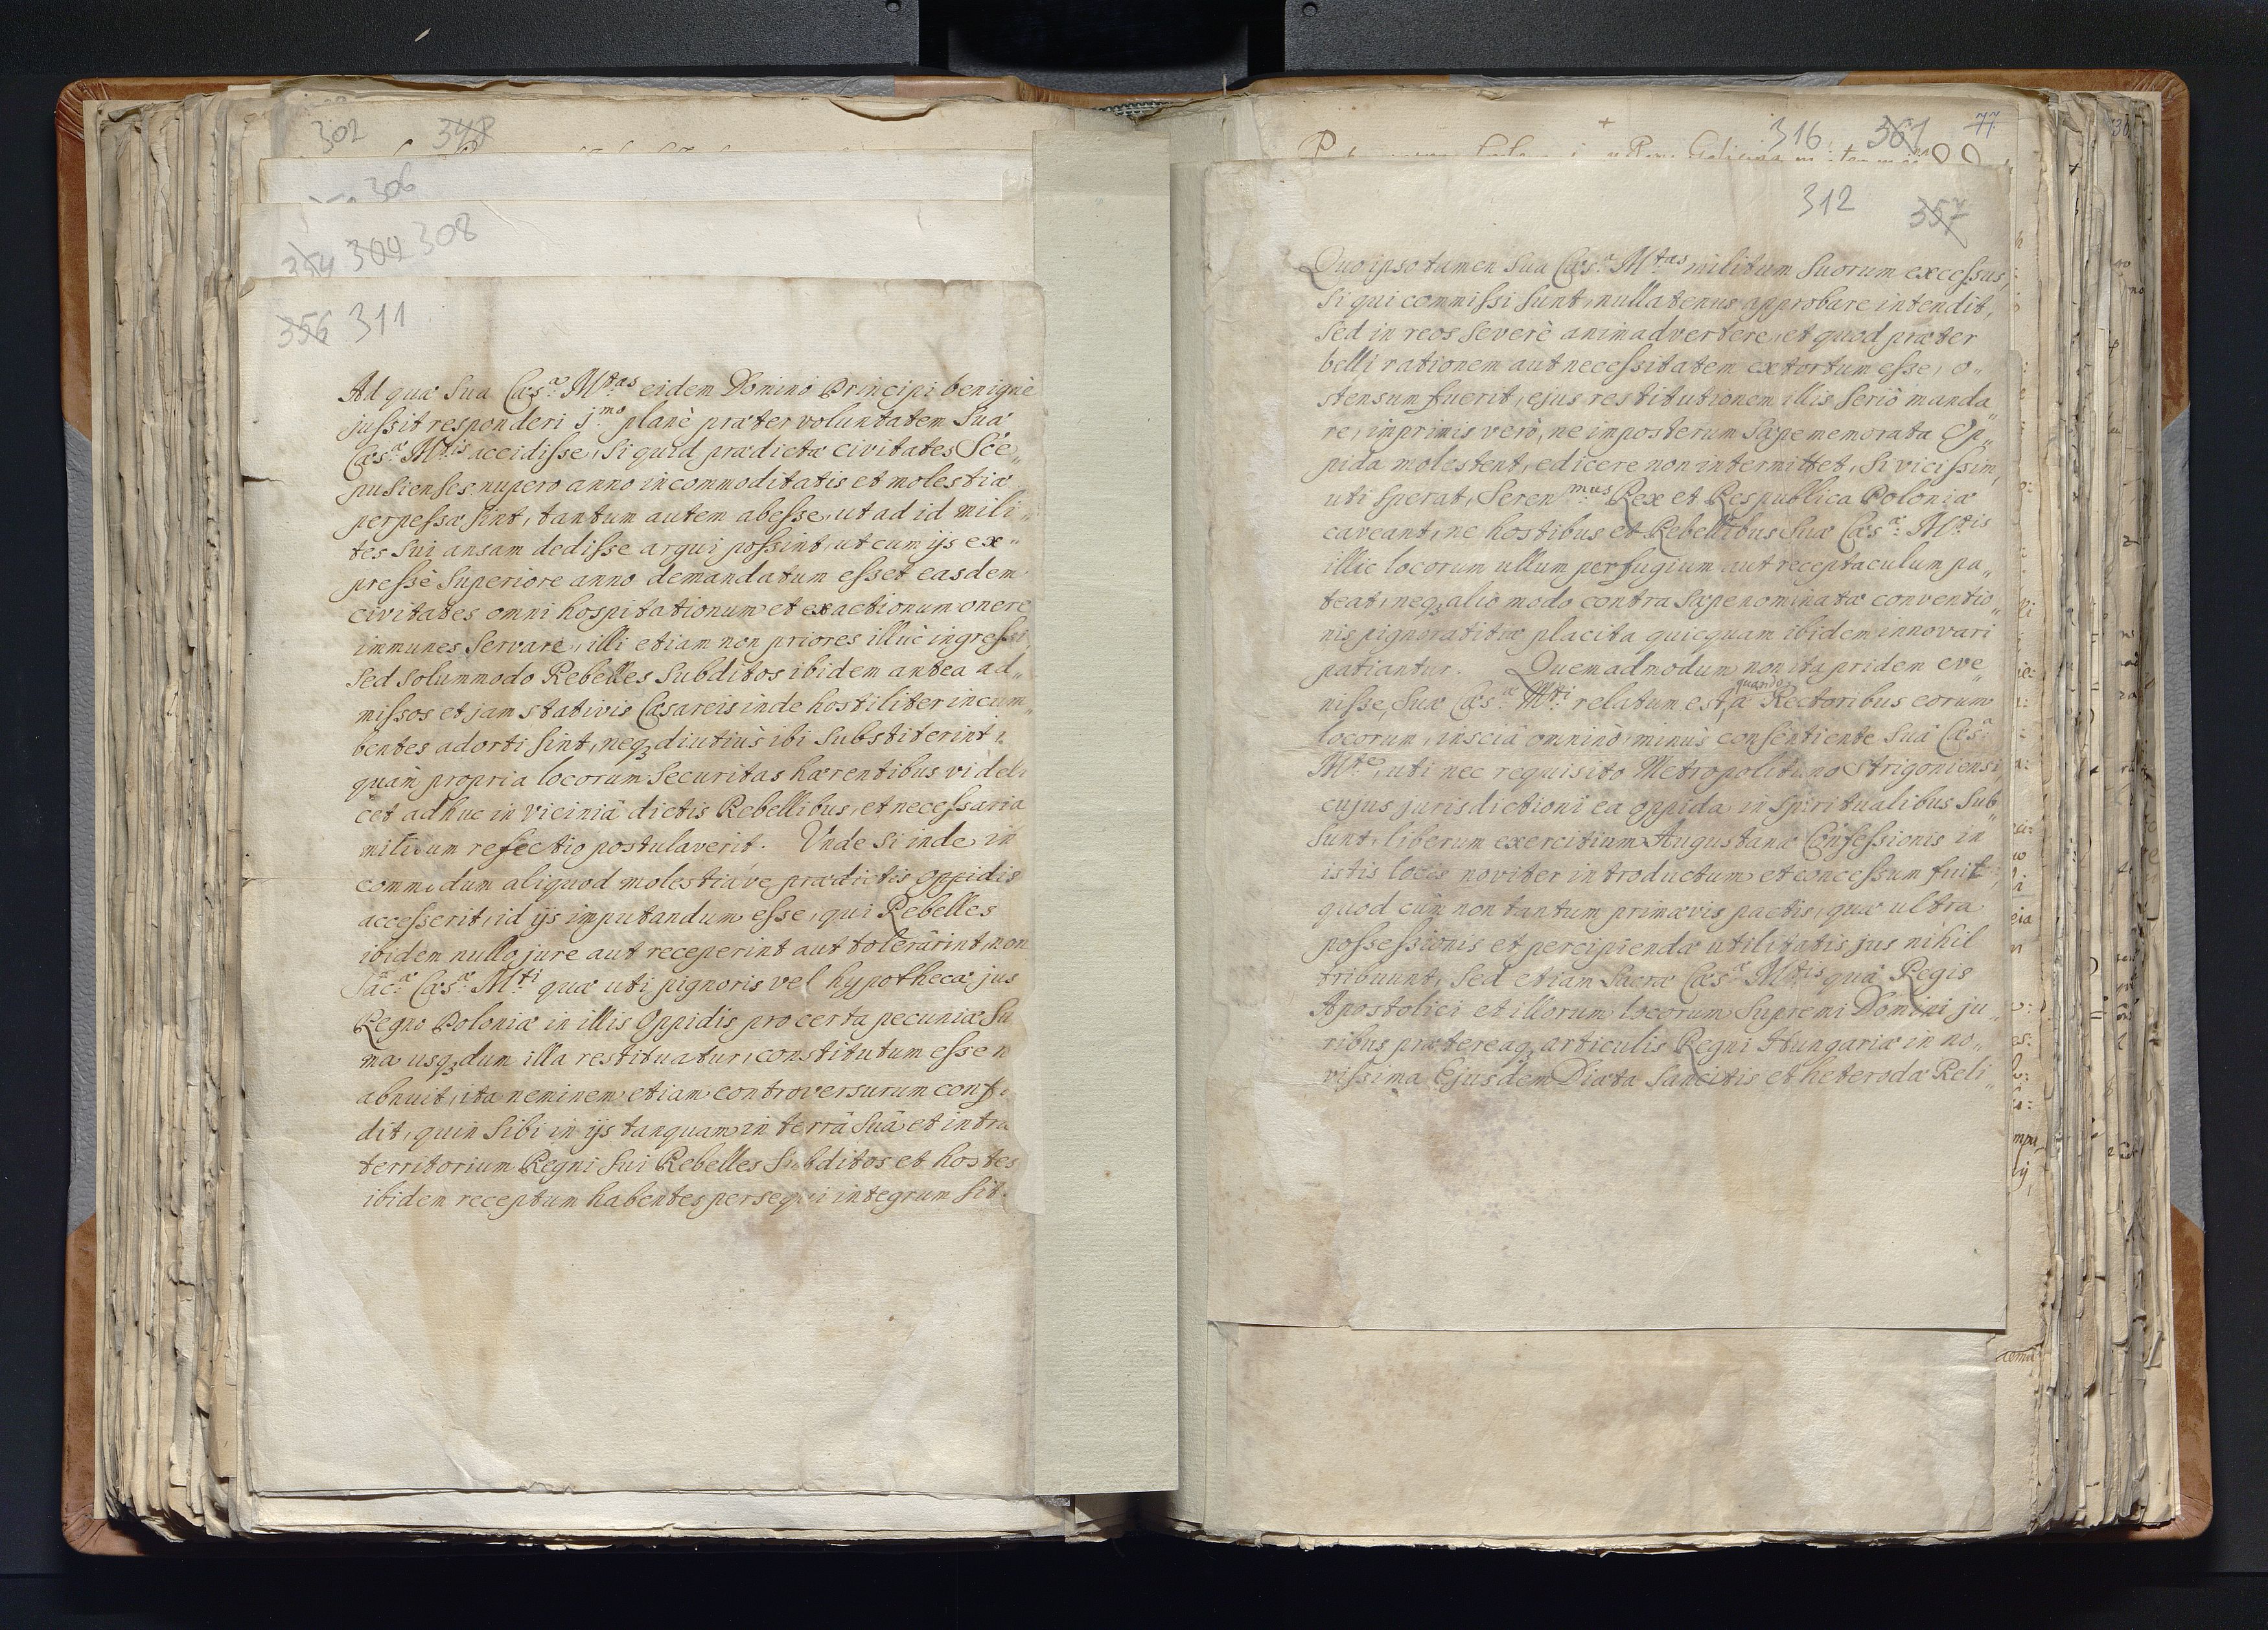 302 348
306
354 304 308
356 311
Ad quæ Sua Cæs.ª M.tas eidem Domino Principi benignè
jussit responderi j.mo planè præter voluntatem Suæ
Cæs.æ M.tis accidisse, Si quid prædictæ civitates Sce„
pusienses nupero anno incommoditatis et molestiæ
perpessæ sint, tantum autem abesse, ut ad id mili„
tes Sui ansam dedisse argui possint, ut cum ijs ex„
pressè Superiore anno demandatum esset easdem
civitates omni hospitationum et exactionum onere
immunes Servare, illi etiam non priores illuc ingressi,
Sed Solummodo Rebelles Subditos ibidem antea ad„
missos et jam stativis Cæsareis inde hostiliter incum„
bentes adorti sint, neq₃ diutius ibi Substiterint,
quàm propria locorum Securitas hærentibus videli
cet adhuc in viciniâ dictis Rebellibus, et necessaria
militum refectio postulaverit. Unde Si inde in
commodum aliquod molestiave prædictis Oppidis
accesserit, id ijs imputandum esse, qui Rebelles
ibidem nullo jure aut receperint aut tolerârint, non
Sac.æ Cæs.æ M.ti quæ uti pignoris vel hypothecæ jus
Regno Poloniæ in illis Oppidis pro certa pecuniæ Su
ma usq₃ dum illa restituatur, constitutum esse n
abnuit, ita neminem etiam controversurum confi
dit, quin Sibi in ijs tanquam in terrâ Suâ et intra
territorium Regni Sui Rebelles Subditos et hostes
ibidem receptum habentes persequi integrum sit.
316 361 77
312 357
Quo ipso tamen Sua Cæs.ª M.tas militum Suorum excessus,
Si qui commissi sunt, nullatenus approbare intendit,
Sed in reos Severè animadvertere, et quod præter
belli rationem aut necessitatem extortum esse, o„
stensum fuerit, ejus restitutionem illis Seriò manda„
re, imprimis verò, ne imposterum Sæpe memorata Op„
pida molestent, edicere non intermittet, Si vicissim,
uti Sperat, Seren.mus Rex et Respublica Poloniæ
caveant, ne hostibus et Rebellibus Suæ Cæs.æ M.tis
illic locorum ullum perfugium aut receptaculum pa„
teat, neq₃ alio modo contra Sæpe nominatæ conventio„
nis pignoratitiæ placita quicquam ibidem innovari
patiantur. Quemadmodum non ita pridem eve„
nisse, Suæ Cæs.æ M.ti relatum est, quando à Rectoribus eorum
locorum, insciâ omninò minus consentiente Suâ Cæs.â
M.te, uti nec requisito Metropolitano Strigoniensi
cujus jurisdictioni ea oppida in Spiritualibus Sub
Sunt, liberum exercitium Augustanæ Confessionis in
istis locis noviter introductum et concessum fuit,
quod cùm non tantum primævis pactis, quæ ultra
possessionis et percipiendæ utilitatis jus nihil
tribuunt, Sed etiam Sacræ Cæs.æ M.tis quà Regis
Apostolici et illorum locorum Supremi Domini ju„
ribus prætereaq₃ articulis Regni Hungariæ in no„
vissima Ejusdem Diæta Sancitis et heterodæ Reli„